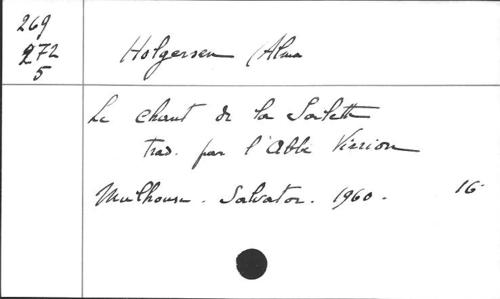 269
272
5
Holgersen (Alma
Le chant de la Source
trad. par l'Abbé Virrion
Mulhouse. Salvator. 1960.
16